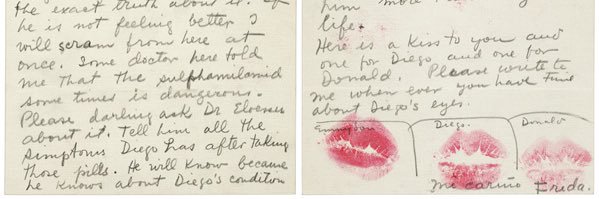 the exact truth about it. If
he is not feeling better I
will scram from here at
once. Some doctor here told
me that the sulphamilamid
some times is dangerous.
Please darling ask Dr Eloesser
about it. Tell him all the
simptoms Diego has after taking
those pills. He will know because
he knows about Diego's condition
him more
life.
Here is a kiss to you and
one for Diego and one for
Donald. Please write to
me when ever you have time
about Diego's eyes.
Emmy Lou Diego. Donald
mi cariño Frida.